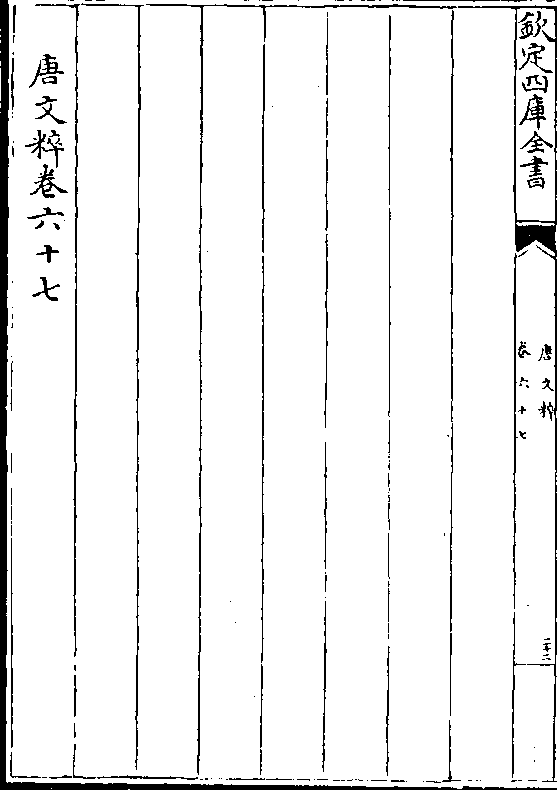 欽定四庫全書
唐文粹
卷六十七
唐文粹卷六十七